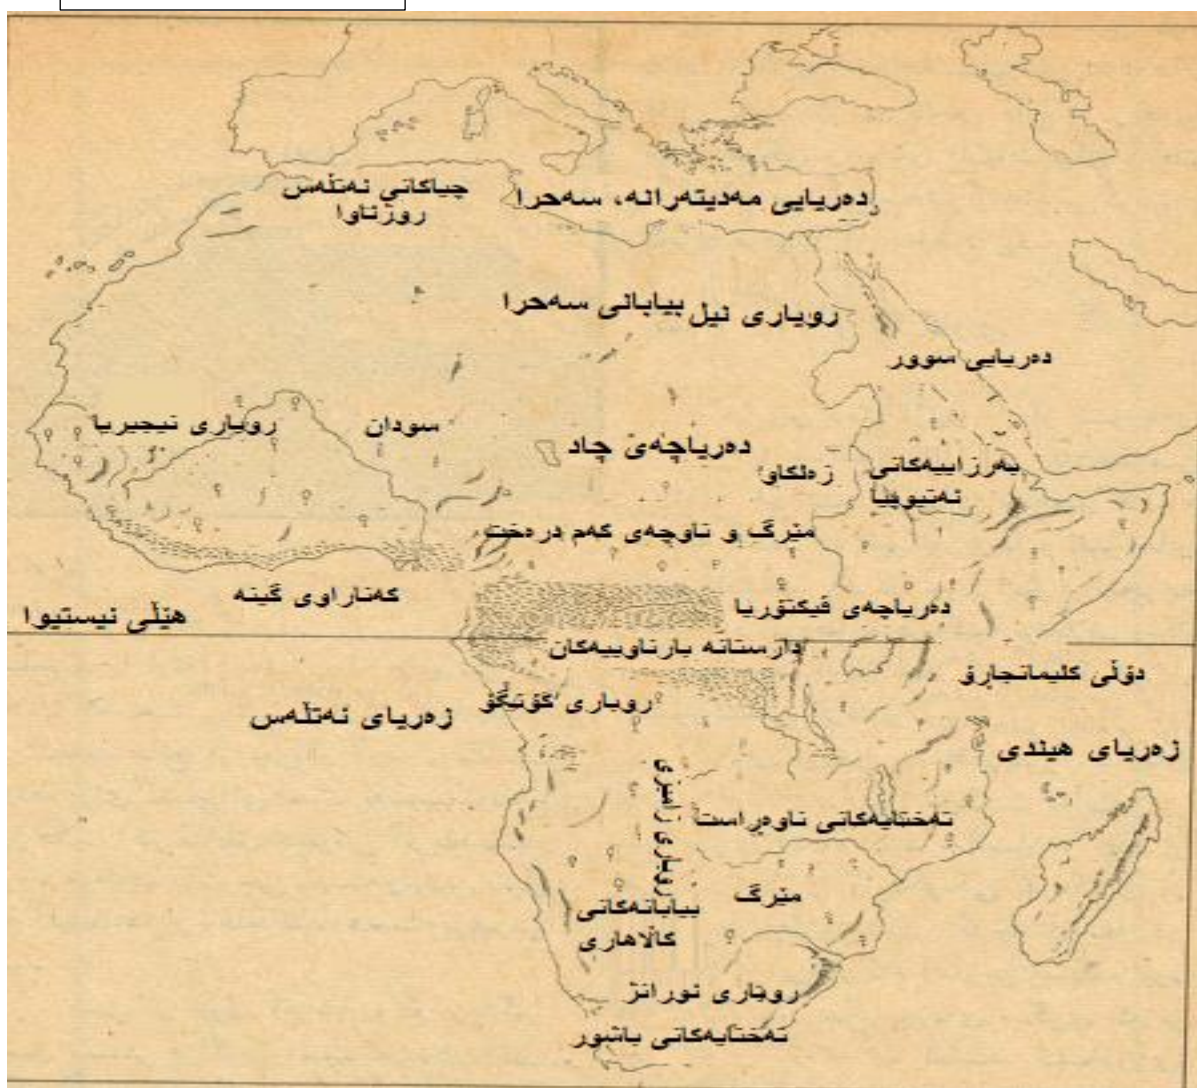 چیاکانی ئەتڵەس
روژئاوا
دەریایی مەدیتەرانە، سەحرا
رویاری نیل بیابانی سەحرا
دەریایی سوور
رویاری نیجیریا
سودان
دەریاچەی چاد
زەلکاو
بەرزاییەکانی
ئەتیوپیا
مێرگ و ناوچەی کەم درەخت
کەناراوی گینە
دەریاچەی فیکتۆریا
هێڵی ئیستیوا
دارستانە بارناوییەکان
دۆڵی کلیمانجارۆ
روباری کۆنگۆ
زەریای ئەتڵەس
زەریای هیندی
روباری زامبزی
تەختایەکانی ناوەراست
مێرگ
بیابانەکانی
کاڵاهاری
روباری ئورانژ
تەختایەکانی باشور